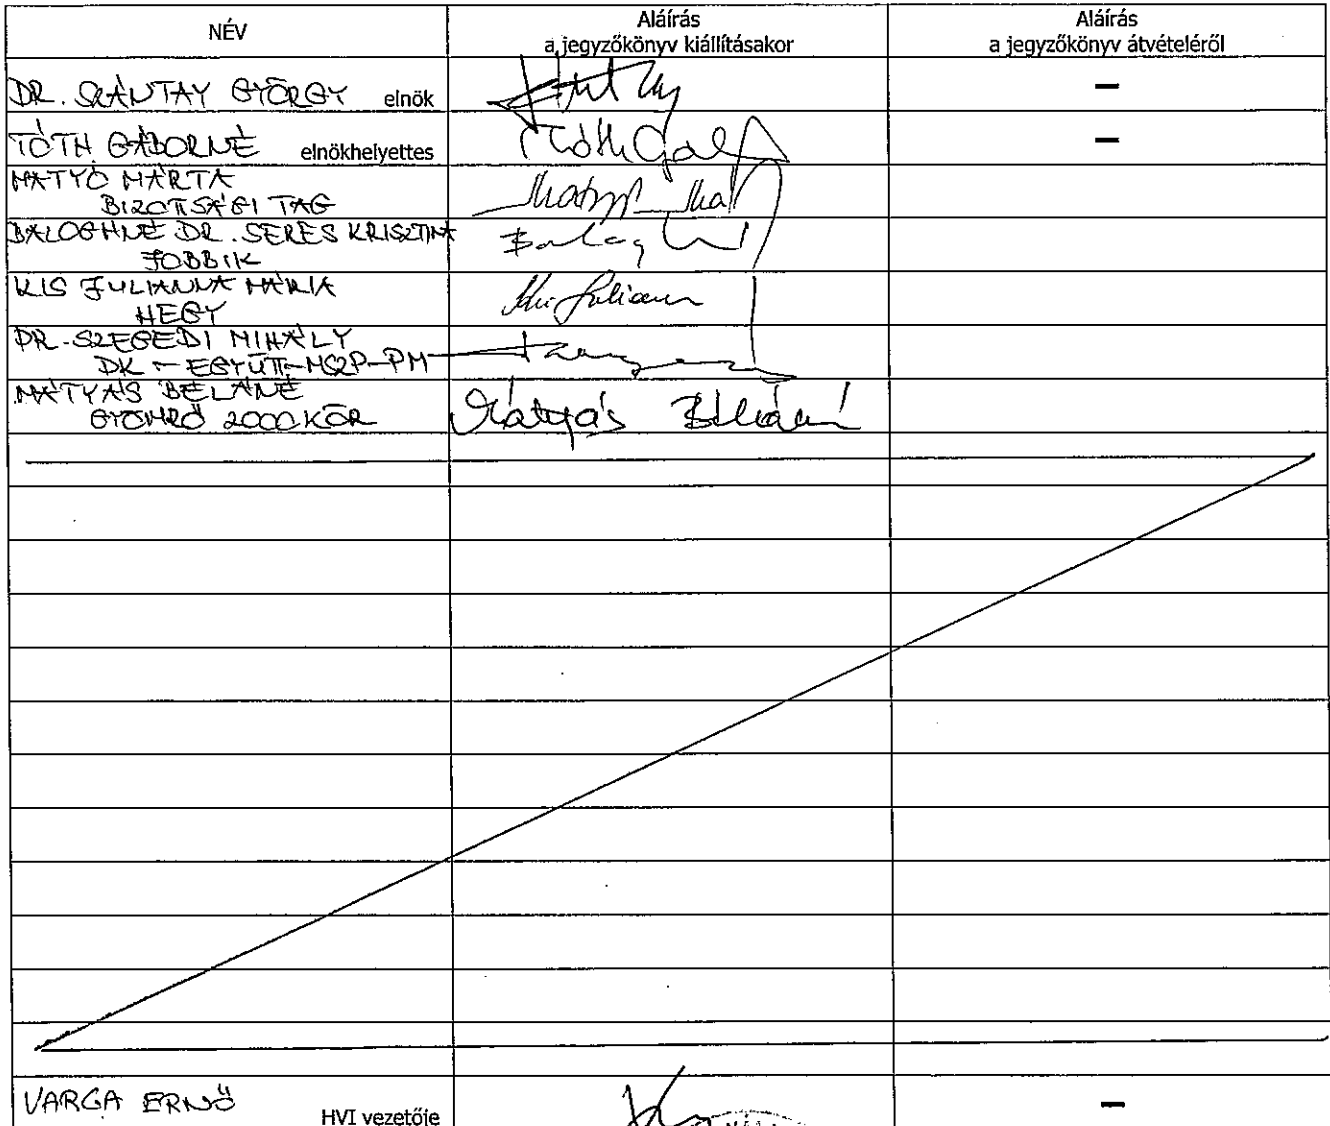 NÉV
Aláírás
a jegyzőkönyv kiállításakor
Aláírás
a jegyzőkönyv átvételéről
DR. SZÁNTAY GYÖRGY elnök
–
TÓTH GÁBORNÉ elnökhelyettes
–
MATYÓ MÁRTA
BIZOTTSÁGI TAG
BALOGHNÉ DR. SERES KRISZTINA
JOBBIK
KIS JULIANNA MÁRIA
HEGY
DR. SZEGEDI MIHÁLY
DK – EGYÜTT–MSZP–PM
MÁTYÁS BÉLÁNÉ
GYÖMRŐ 2000 KÖR
Mátyás Béláné
VARGA ERNŐ
HVI vezetője
–